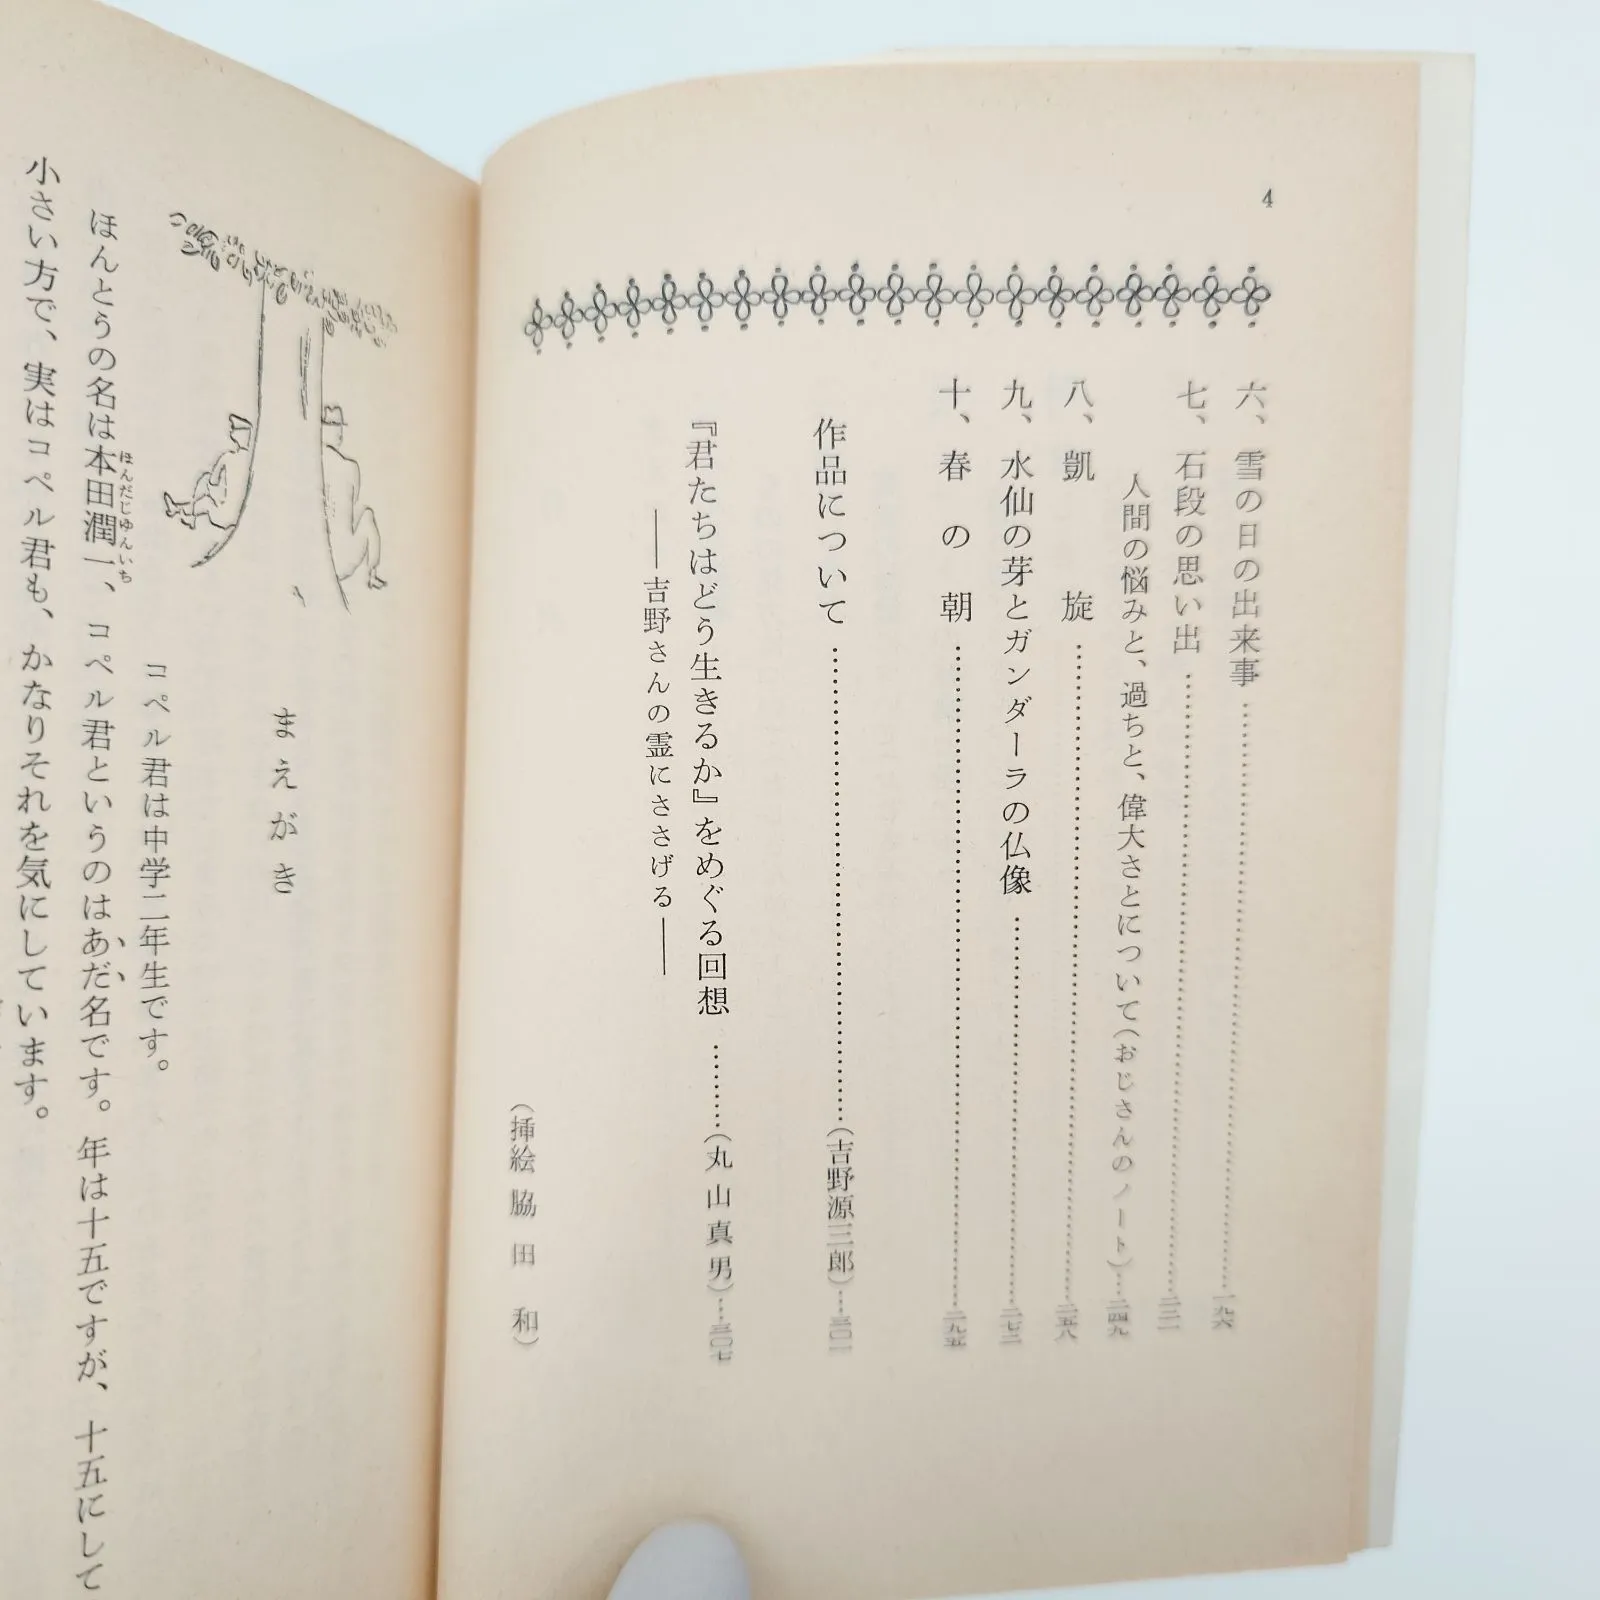 4
六、雪の日の出来事……一九六
七、石段の思い出……二三一
人間の悩みと、過ちと、偉大さとについて(おじさんのノート)……二四九
八、凱旋……二五八
九、水仙の芽とガンダーラの仏像……二七三
十、春の朝……二九五
作品について……(吉野源三郎)…三〇一
『君たちはどう生きるか』をめぐる回想……(丸山真男)…三〇七
――吉野さんの霊にささげる――
(挿絵 脇田 和)
まえがき
コペル君は中学二年生です。
ほんとうの名は本田潤一、コペル君というのはあだ名です。年は十五ですが、十五にして
ほんだじゅんいち
小さい方で、実はコペル君も、かなりそれを気にしています。